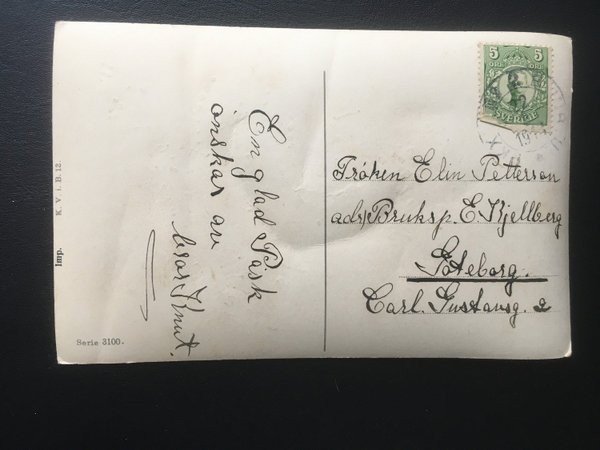 En glad Påsk
önskar av
bror Knut.
Fröken Elin Petterson
adr/Bruksp. E. Kjellberg
Göteborg.
Carl. Gustavsg. 2
5 5
ÖRE ÖRE
SVERIGE
Imp. K. V. i. B. 12.
Serie 3100.